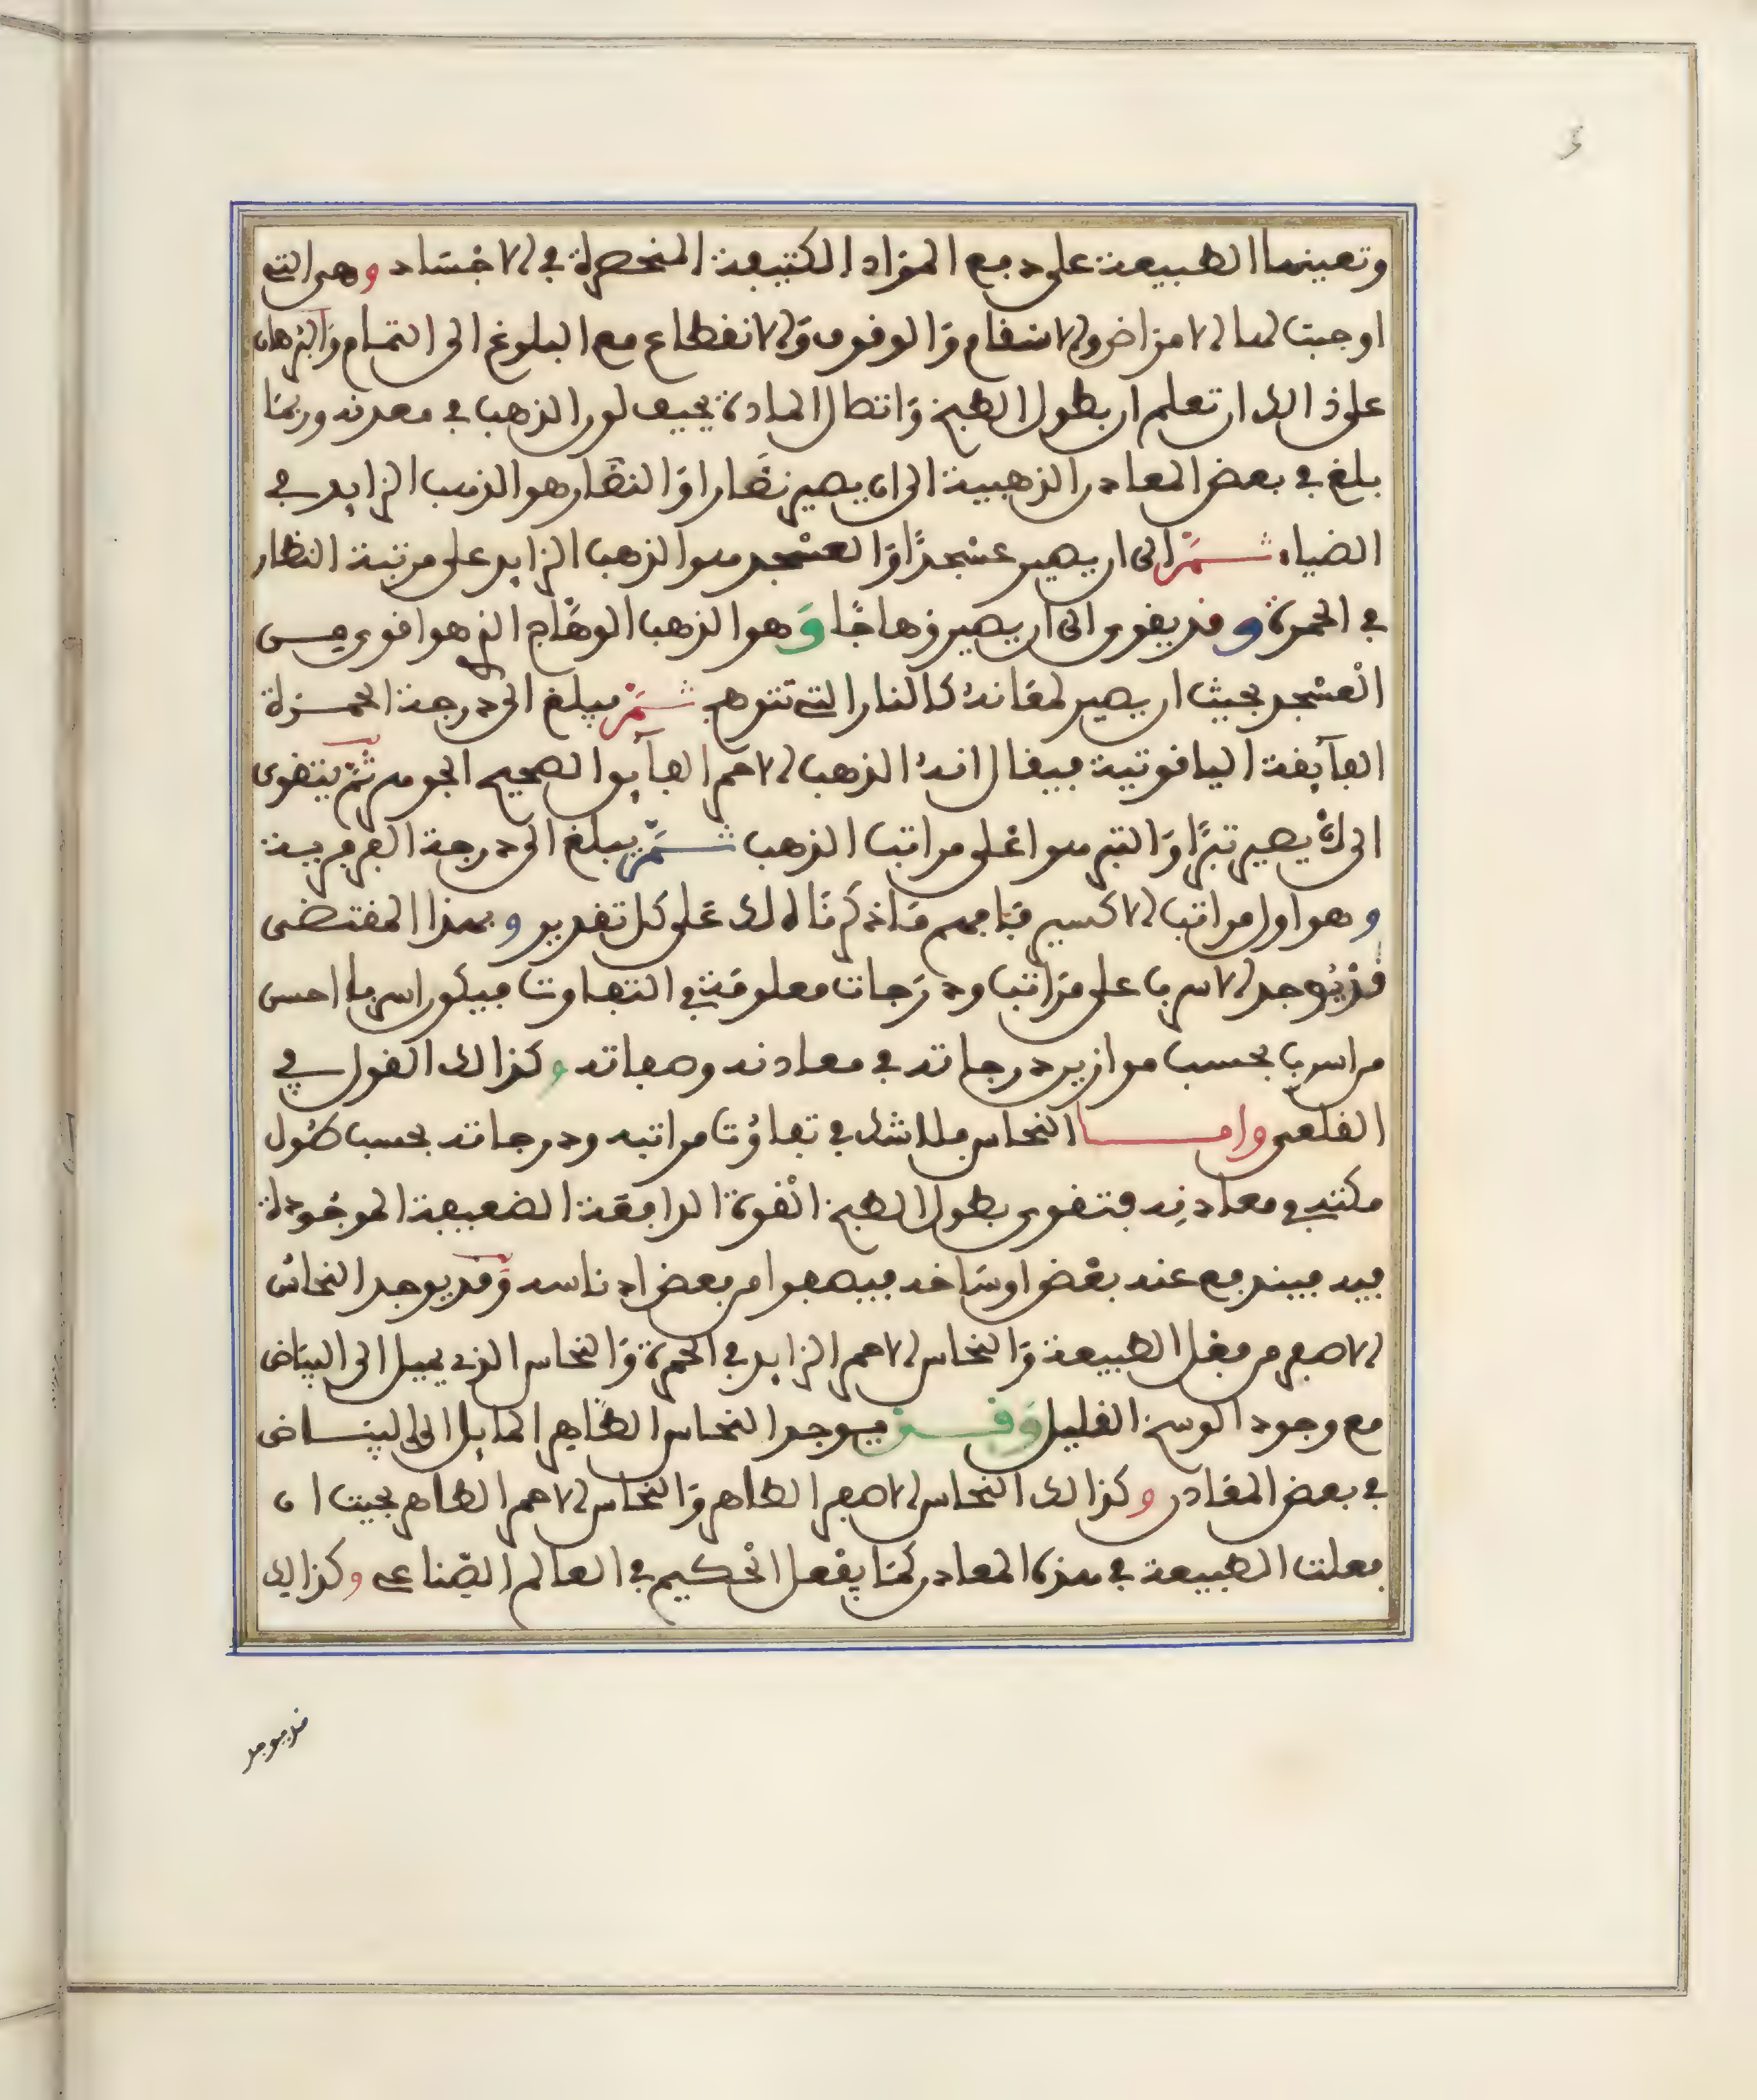 وتعينها الطبيعة على دفع المواد الكثيفة المنحصرة في الاجساد وهى التي
اوجبت لها الامراض والاسقام والوقوف والانقطاع مع البلوغ الى التمام والبرهان
على ذالك ان تعلم ان بطول الطبخ واتصال المادة يخيف لون الذهب في معدنه وربما
بلغ في بعض المعادن الذهبية الى ان يصير نضارا والنضار هو الذهب الزايد في
الضياء ثم الى ان يصير عسجدا والعسجد هو الذهب الزايد على مرتبة النظار
في الحمرة وقد يقوى الى ان يصير وهاجا وهو الذهب الوهاج الذ هو اقوى من
العسجد بحيث ان يصير لمعانه كالنار التي تتوهج ثم يبلغ الى درجة الحمرة
الفآيقة الياقوتية فيقال انه الذهب الاحمر الفآيق الصحيح الجوهر ثم يتقوى
الى ان يصير تبرا والتبر هو اعلى مراتب الذهب ثم يبلغ الى درجة الفرفرية
وهو اول مراتب الاكسير فافهم ما ذكرنا لك على كل تقدير وبهذا المقتضى
قد يوجد الاسرب على مراتب ودرجات معلومة في التفاوت فيكون اسربا احسن
من اسرب بحسب موازين درجاته في معادنه وصفاته وكذالك القول في
القلعى واما النحاس فلا شك في تفاوت مراتبه ودرجاته بحسب طول
مكثه في معادنه فتقوى بطول الطبخ القوة الدافعة الضعيفة الموجودة
فيه فيندفع عنه بعض اوساخه فيصفوا من بعض ادناسه وقد يوجد النحاس
الاصفر من فعل الطبيعة والنحاس الاحمر الزايد في الحمرة والنحاس الذي يميل الى البياض
مع وجود الوسخ القليل وقد يوجد النحاس الطاهر المايل الى البياض
في بعض المعادن وكذالك النحاس الاصفر الطاهر والنحاس الاحمر الطاهر بحيث ان
فعلت الطبيعة في هذه المعادن كما يفعل الحكيم في العالم الصناعي وكذالك
قد يوجد